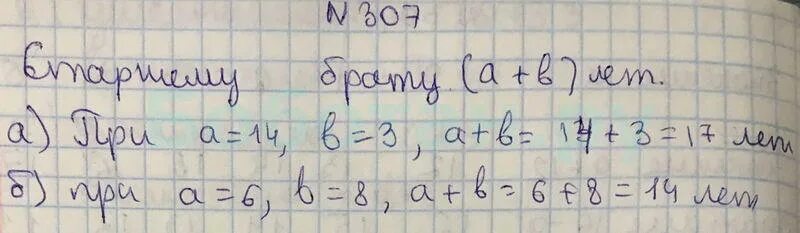 N 307
Старшему брату (a+b) лет.
а) При a=14, b=3, a+b= 14+3=17 лет
б) при a=6, b=8, a+b=6+8=14 лет